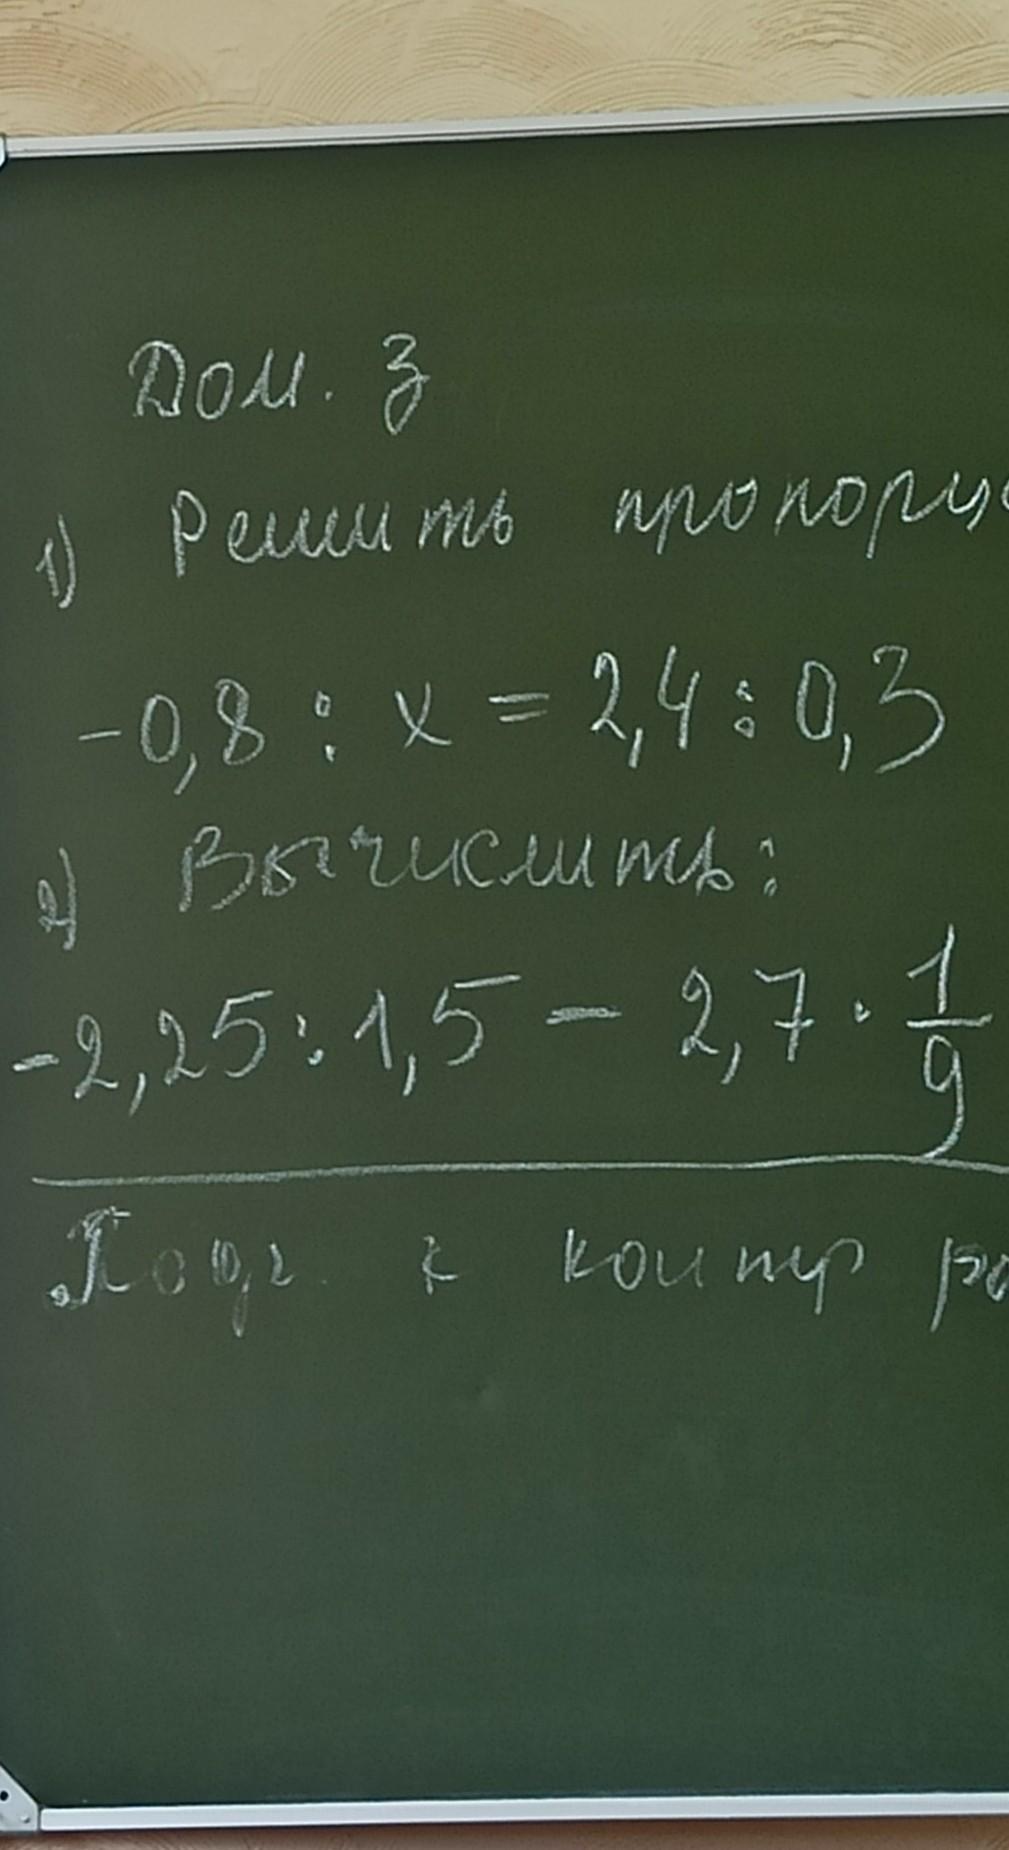 Дом. З
1) Решить пропорц
-0,8 : x = 2,4 : 0,3
2) Вычислить:
-2,25 : 1,5 - 2,7 · 1/9
Подг. к контр ра